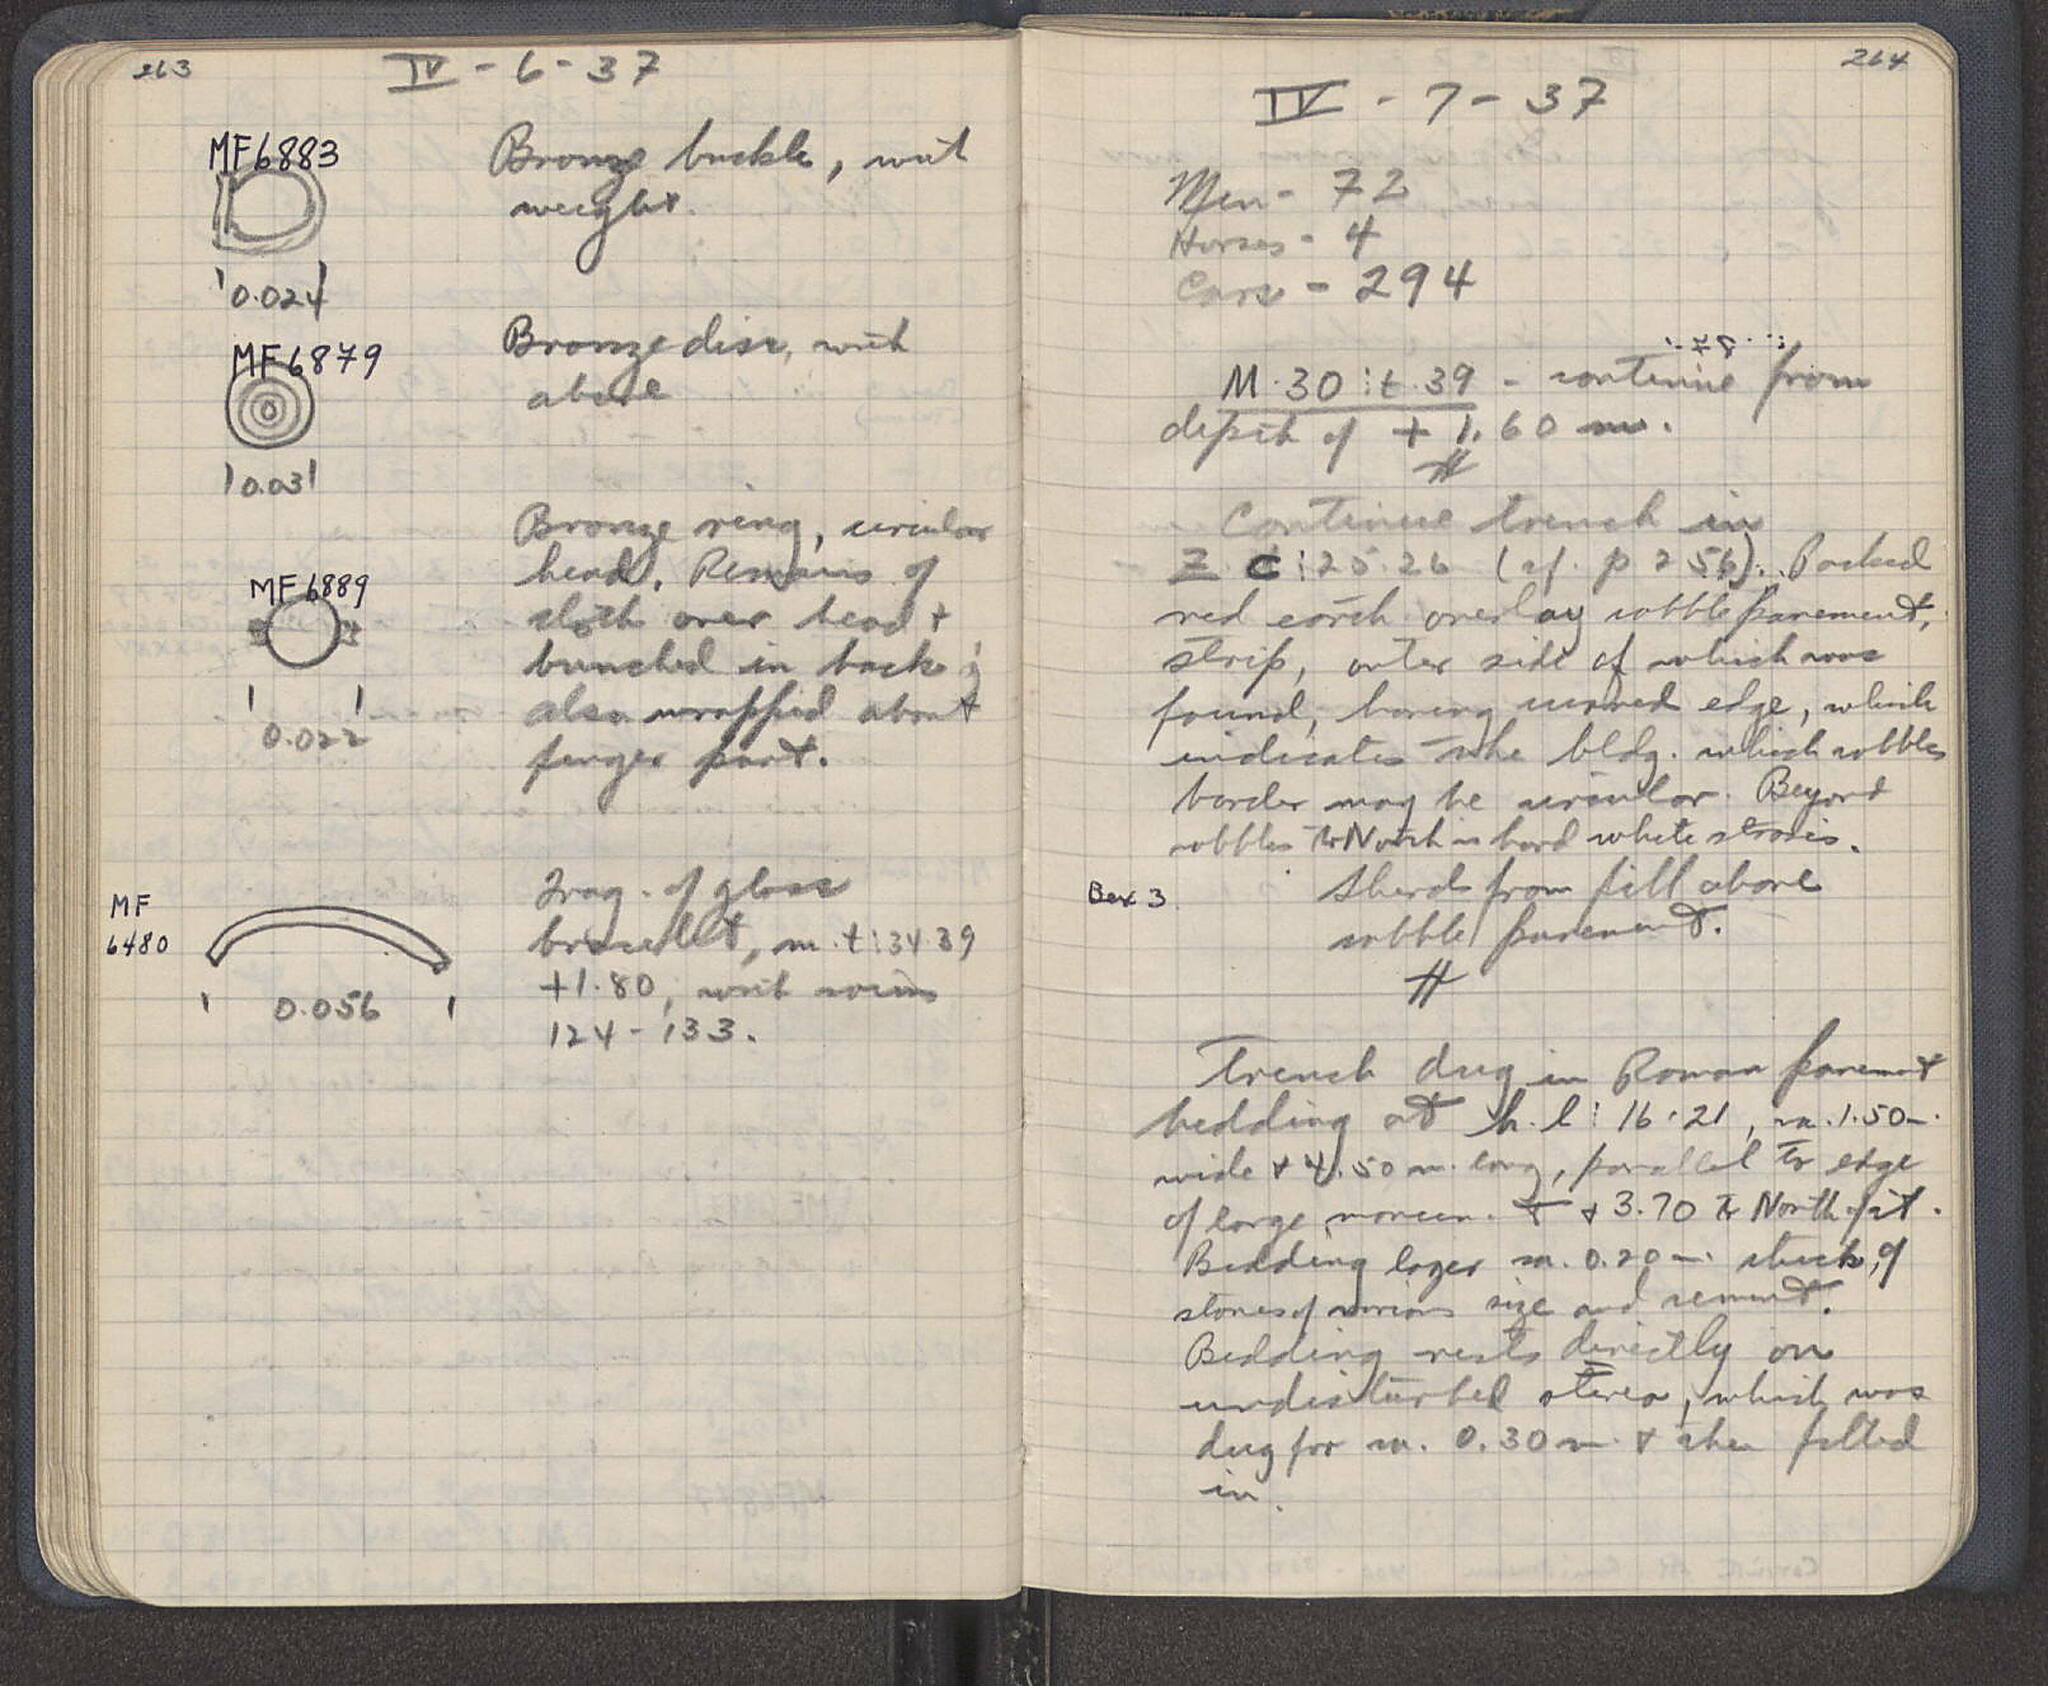 263
IV - 6 - 37
MF6883
0.024
Bronze buckle, with
weight.
MF6879
0.031
Bronze disc, with
above
MF6889
0.022
Bronze ring, circular
head. Remains of
cloth over head +
bunched in back;
also wrapped about
finger part.
MF
6480
0.056
Frag. of glass
bracelet, m.t:34.39
+1.80, with coins
124-133.
264
IV - 7 - 37
Men - 72
Horses - 4
Cars - 294
M.30:t.39 - continue from
depth of + 1.60 m.
Continue trench in
Z C:25.26 (cf. p 256). Packed
red earth overlay cobble pavement,
strip, outer side of which was
found, having curved edge, which
indicates the bldg. which cobbles
border may be circular. Beyond
cobbles to North is hard white stratum.
Box 3
Sherds from fill above
cobble pavement.
Trench dug in Roman pavement
bedding at h.l:16.21, ca. 1.50 m.
wide + 4.50 m. long, parallel to edge
of large + 3.70 to North of it.
Bedding layer ca. 0.20 m. thick, of
stones of various size and cement.
Bedding rests directly on
undisturbed stereo, which was
dug for ca. 0.30 m. + then filled
in.